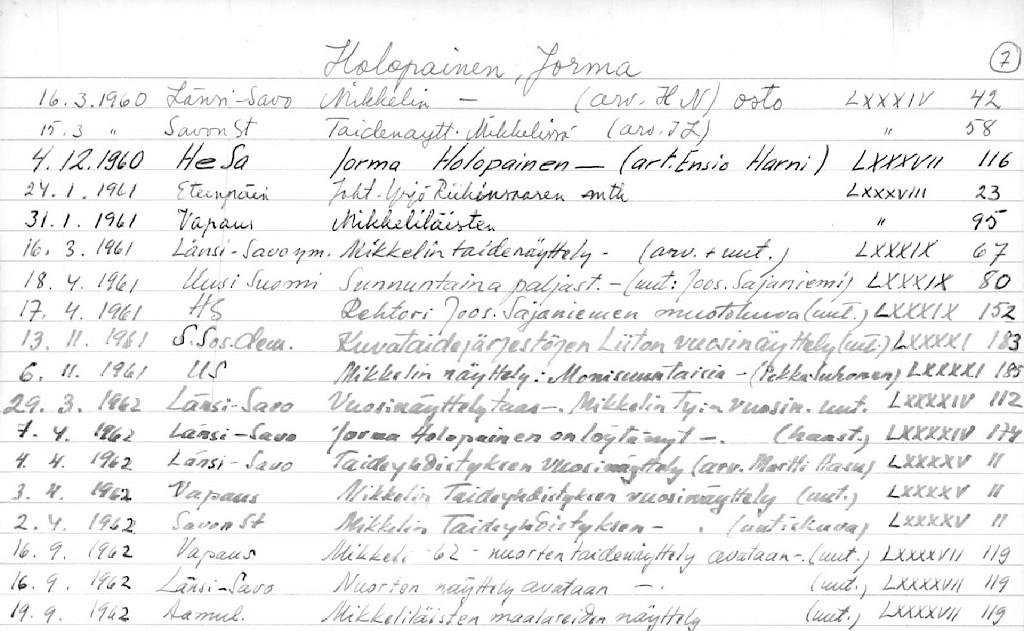 Holopainen, Jorma 7
16.3.1960 Länsi-Savo Mikkelin — (arv. H N) osto LXXXIV 42
15.3 " Savon St Taidenäytt. Mikkelissä (arv. J L) " 58
4.12.1960 HeSa Jorma Holopainen — (art. Ensio Harni) LXXXVII 116
24.1.1961 Eteenpäin Joht. Yrjö Riihinsaaren mtk LXXXVIII 23
31.1.1961 Vapaus Mikkeliläisten " 95
16.3.1961 Länsi-Savo ym. Mikkelin taidenäyttely - (arv. + uut.) LXXXIX 67
18.4.1961 Uusi Suomi Sunnuntaina paljast. - (uut: Joos. Sajaniemi) LXXXIX 80
17.4.1961 HS Rehtori Joos. Sajaniemen muotokuva (uut.) LXXXIX 152
13.11.1961 S.Sos.dem. Kuvataidejärjestöjen Liiton vuosinäyttely (uut.) LXXXXI 183
6.11.1961 US Mikkelin näyttely: Monisuuntaisia - (Pekka Suhonen) LXXXXI 185
29.3.1962 Länsi-Savo Vuosinäyttely taas -. Mikkelin Ty:n vuosin. uut. LXXXXIV 112
7.4.1962 Länsi-Savo Jorma Holopainen on löytänyt -. (haast.) LXXXXIV 174
4.4.1962 Länsi-Savo Taideyhdistyksen vuosinäyttely (arv. Martti Hasu) LXXXXV 11
3.4.1962 Vapaus Mikkelin Taideyhdistyksen vuosinäyttely (uut.) LXXXXV 11
2.4.1962 Savon St Mikkelin Taideyhdistyksen - . (uutiskuva) LXXXXV 11
16.9.1962 Vapaus Mikkeli -62 - nuorten taidenäyttely avataan -. (uut.) LXXXXVII 119
16.9.1962 Länsi-Savo Nuorten näyttely avataan -. (uut.) LXXXXVII 119
19.9.1962 Aamul. Mikkeliläisten maalareiden näyttely (uut.) LXXXXVII 119